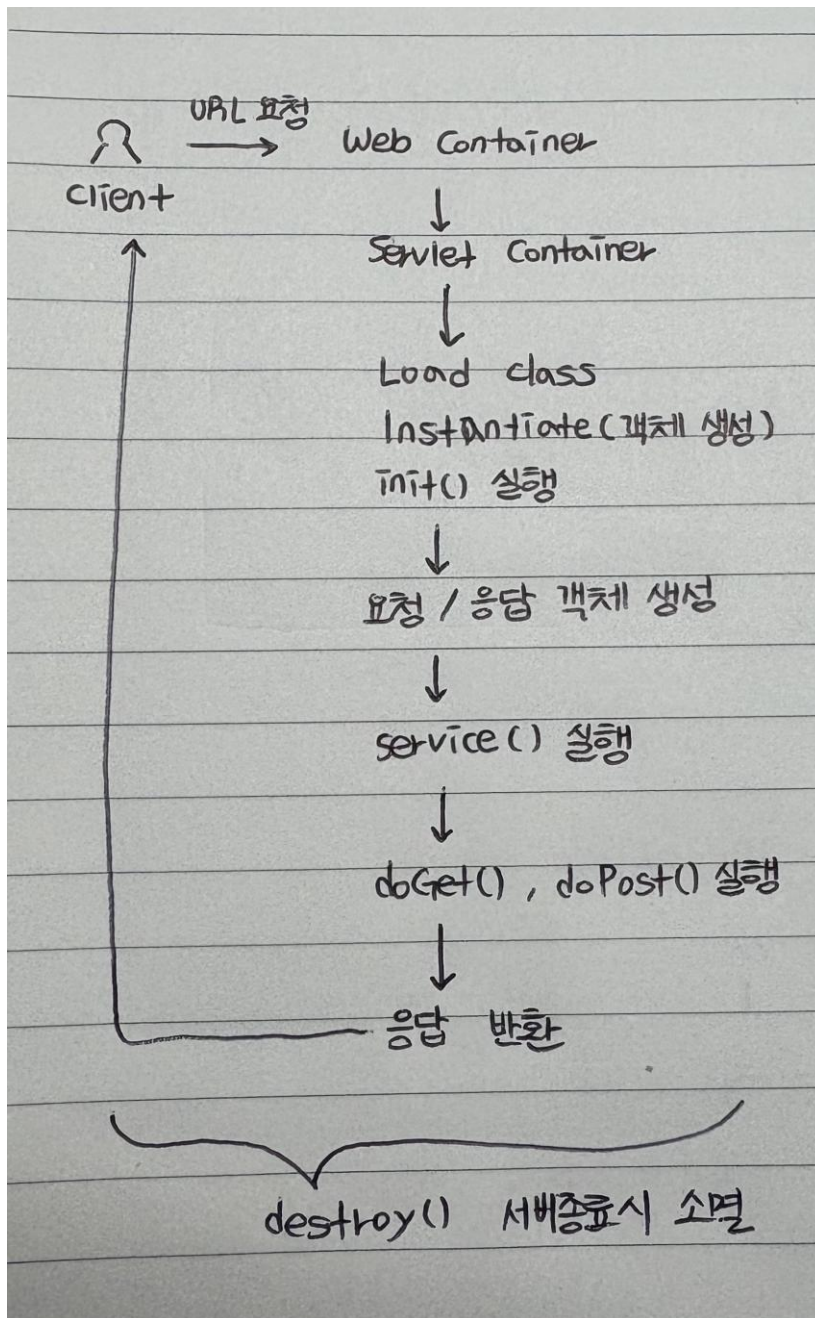 URL 요청
Web Container
Client
Servlet Container
Load class
Instantiate (객체 생성)
init() 실행
요청 / 응답 객체 생성
service() 실행
doGet() , doPost() 실행
응답 반환
destroy() 서버종료시 소멸